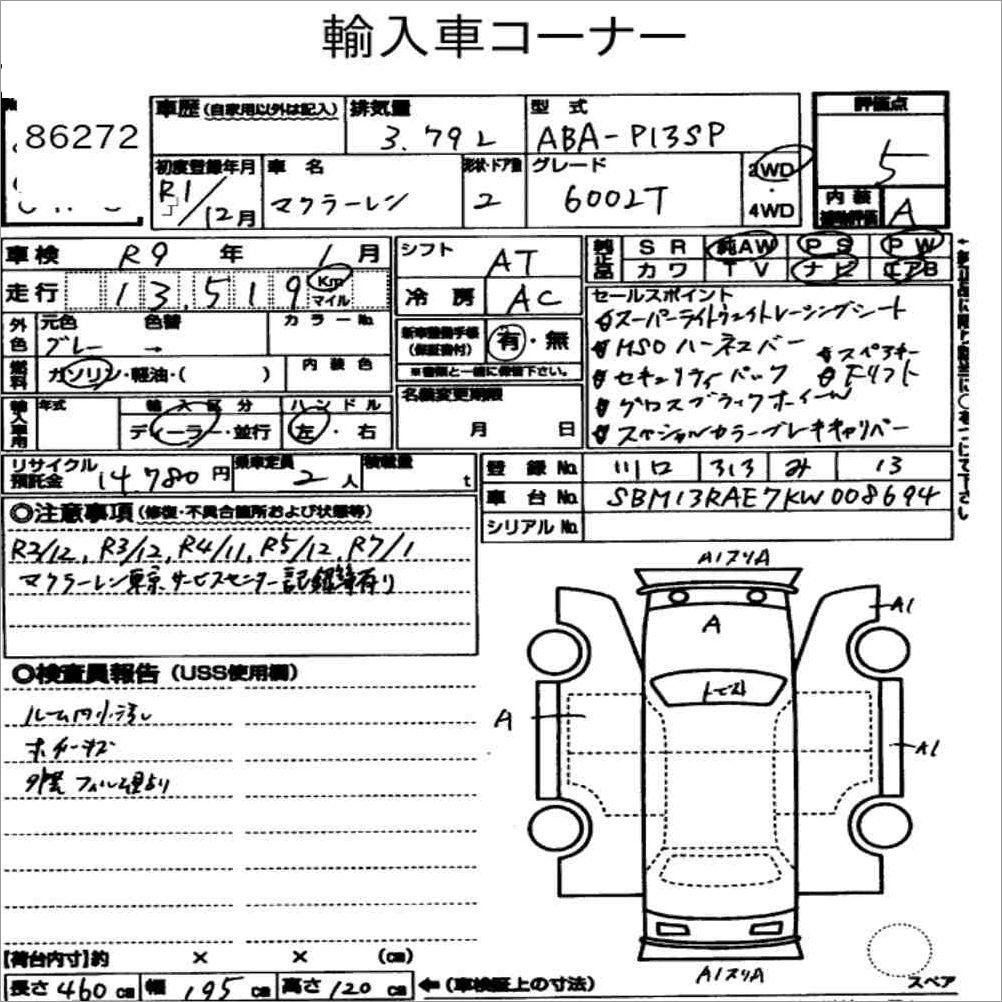 輸入車コーナー
86272
車歴(自家用以外は記入)
排気量
3.79L
型式
ABA-P13SP
評価点
5
内装
補助評価
A
初度登録年月
R1/12月
車名
マクラーレン
形状・ドア数
2
グレード
600LT
2WD
・
4WD
車検 R9年1月
シフト
AT
純正品
SR 純AW PS PW
カワ TV ナビ エアB
走行 13,519 Km マイル
冷房
AC
セールスポイント
スーパーライトウェイトレーシングシート
MSOハーネスバー
スペアキー
セキュリティパック
リフト
グロスブラックホイール
スペシャルカラーブレーキキャリパー
外色
元色
グレー
色替
→
カラーNo.
新車整備手帳
(保証書付)
有・無
※書類と一緒に保管下さい。
燃料
ガソリン・軽油・( )
内装色
名義変更期限
月 日
輸入車用
年式
輸入区分
ディーラー・並行
ハンドル
左・右
リサイクル
預託金
14,780円
乗車定員
2人
積載量
t
登録No. 川口 313 み 13
車台No. SBM13RAE7KW008694
シリアルNo.
◎注意事項(修復・不具合箇所および状態等)
R2/12, R3/12, R4/11, R5/12, R7/1
マクラーレン東京サービスセンター記録簿有り
◎検査員報告(USS使用欄)
ルーム内小汚れ
ボデー小キズ
外装フィルム貼り
A1スリA
A
A1
トビ石
A
A1
A1スリA
スペア
【荷台内寸】約 × × (cm)
長さ 460 cm 幅 195 cm 高さ 120 cm ←(車検証上の寸法)